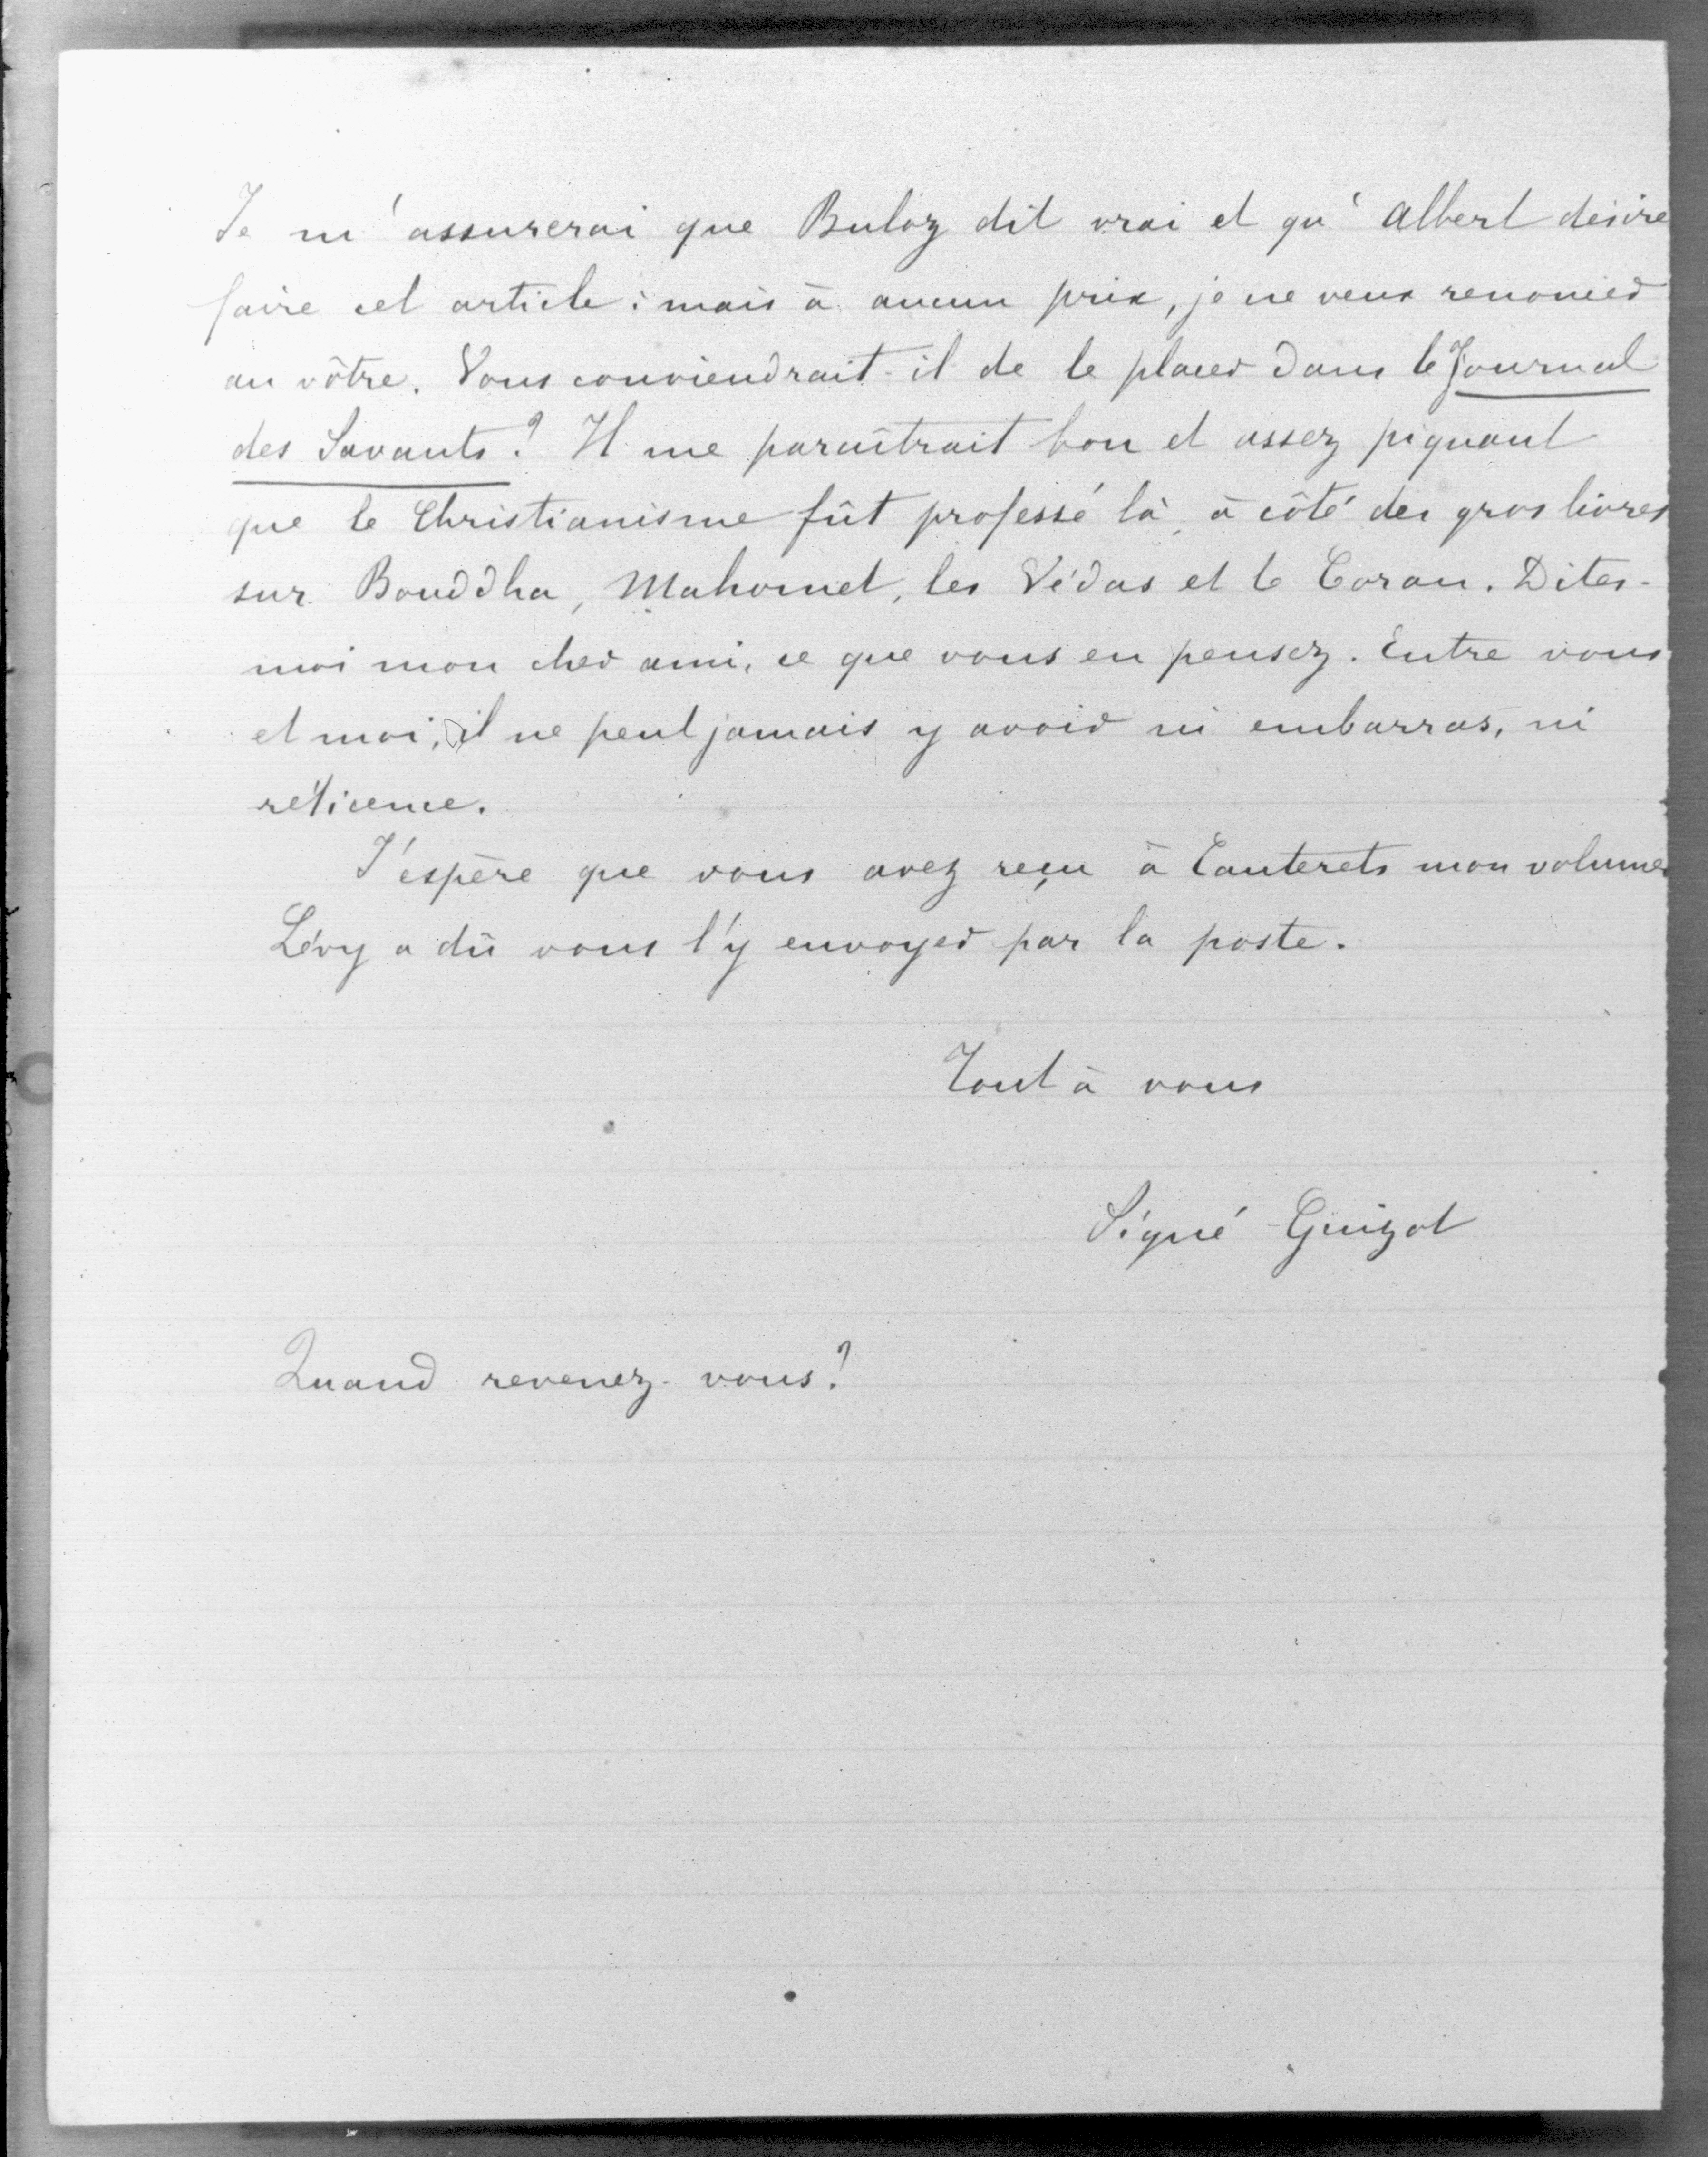 Je m'assurerai que Buloz dit vrai et qu'Albert désire
faire cet article : mais à aucun prix, je ne veux renoncer
au vôtre. Vous conviendrait-il de le placer dans le Journal
des Savants ? Il me paraîtrait bon et assez piquant
que le Christianisme fût professé là, à côté des gros livres
sur Bouddha, Mahomet, les Védas et le Coran. Dites-
moi mon cher ami, ce que vous en pensez. Entre vous
et moi, il ne peut jamais y avoir ni embarras, ni
réticence.
J'espère que vous avez reçu à Cauterets mon volume
Lévy a dû vous l'y envoyer par la poste.
Tout à vous
Signé Guizot
Quand revenez-vous ?